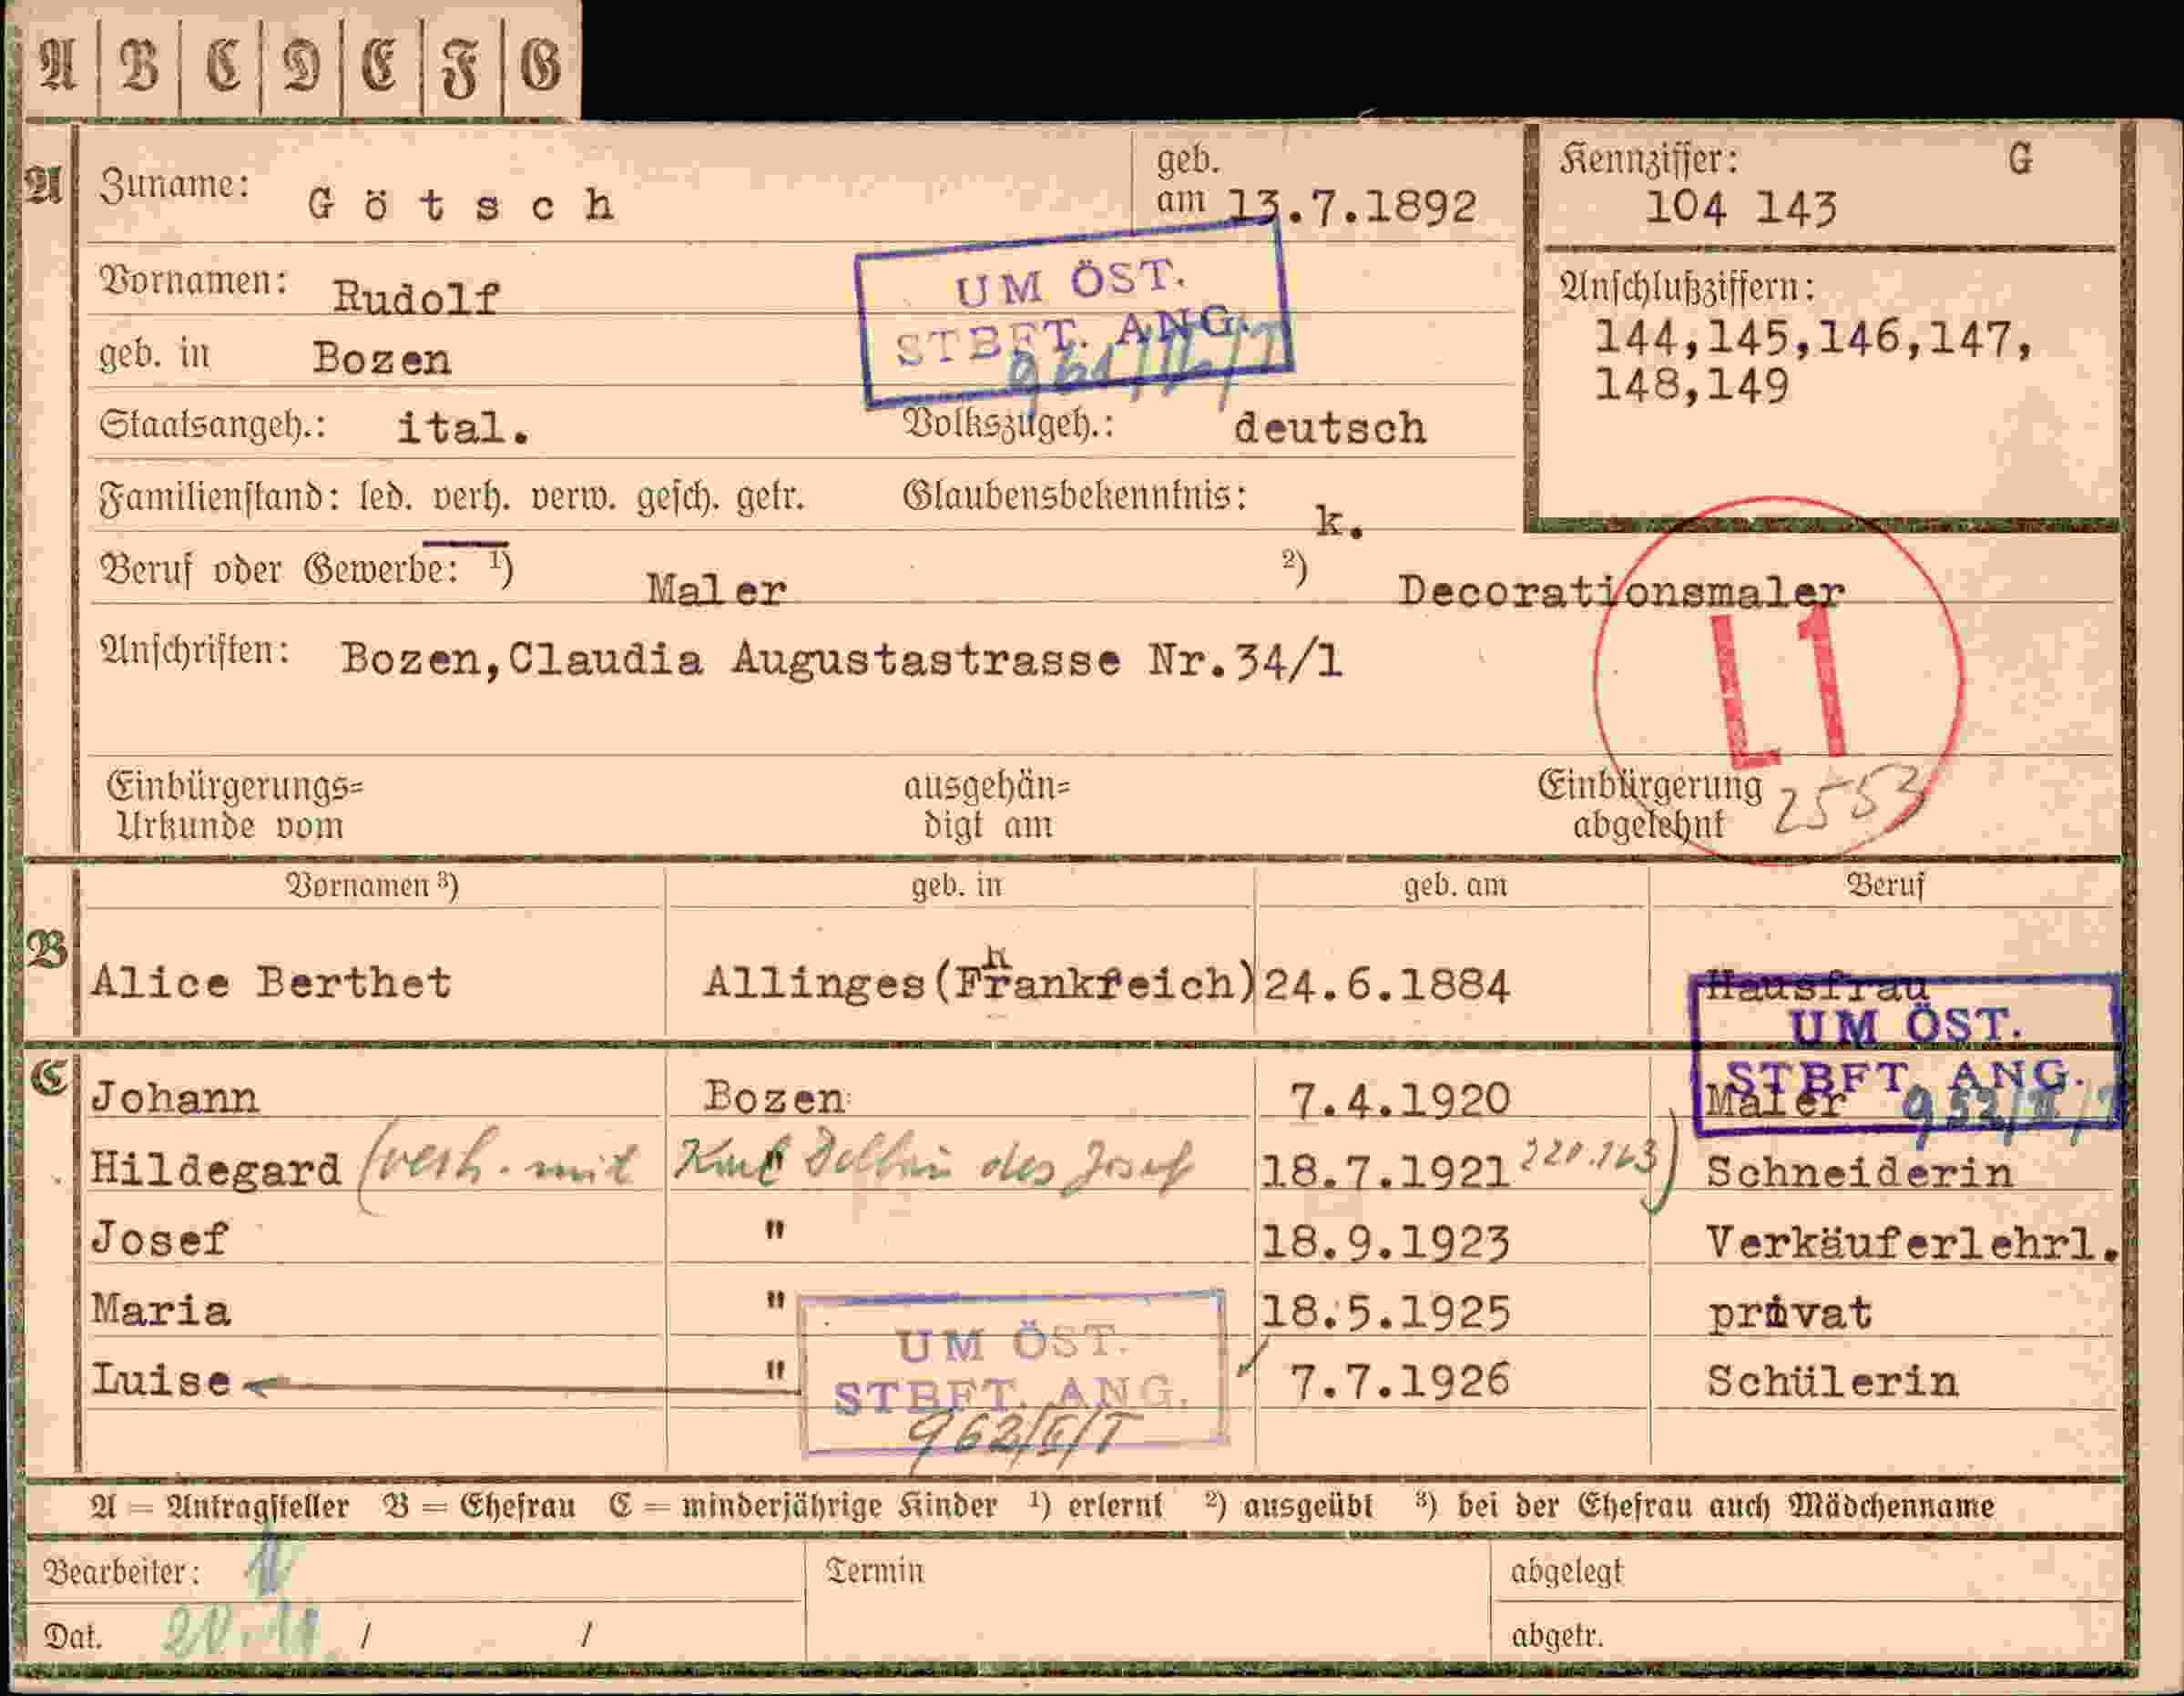 A B C D E F G
A
Zuname: Götsch
geb. am 13.7.1892
Kennziffer: G
104 143
Vornamen: Rudolf
UM ÖST.
STBFT. ANG.
Anschlußziffern:
144,145,146,147,
148,149
geb. in Bozen
Staatsangeh.: ital. Volkszugeh.: deutsch
Familienstand: led. verh. verw. gesch. getr. Glaubensbekenntnis: k.
Beruf oder Gewerbe: 1) Maler 2) Decorationsmaler
L1
Anschriften: Bozen,Claudia Augustastrasse Nr.34/1
Einbürgerungs= Urkunde vom
ausgehän= digt am
Einbürgerung abgelehnt 2553
Vornamen 3) geb. in geb. am Beruf
B
Alice Berthet Allinges(Frankreich) 24.6.1884 Hausfrau
UM ÖST.
STBFT. ANG.
C
Johann Bozen 7.4.1920 Maler
Hildegard (verh. mit " des Josef 18.7.1921 ) Schneiderin
Josef " 18.9.1923 Verkäuferlehrl.
Maria " 18.5.1925 privat
Luise " 7.7.1926 Schülerin
UM ÖST.
STBFT. ANG.
A = Antragsteller B = Ehefrau C = minderjährige Kinder 1) erlernt 2) ausgeübt 3) bei der Ehefrau auch Mädchenname
Bearbeiter: Termin abgelegt
Dat. / / abgetr.